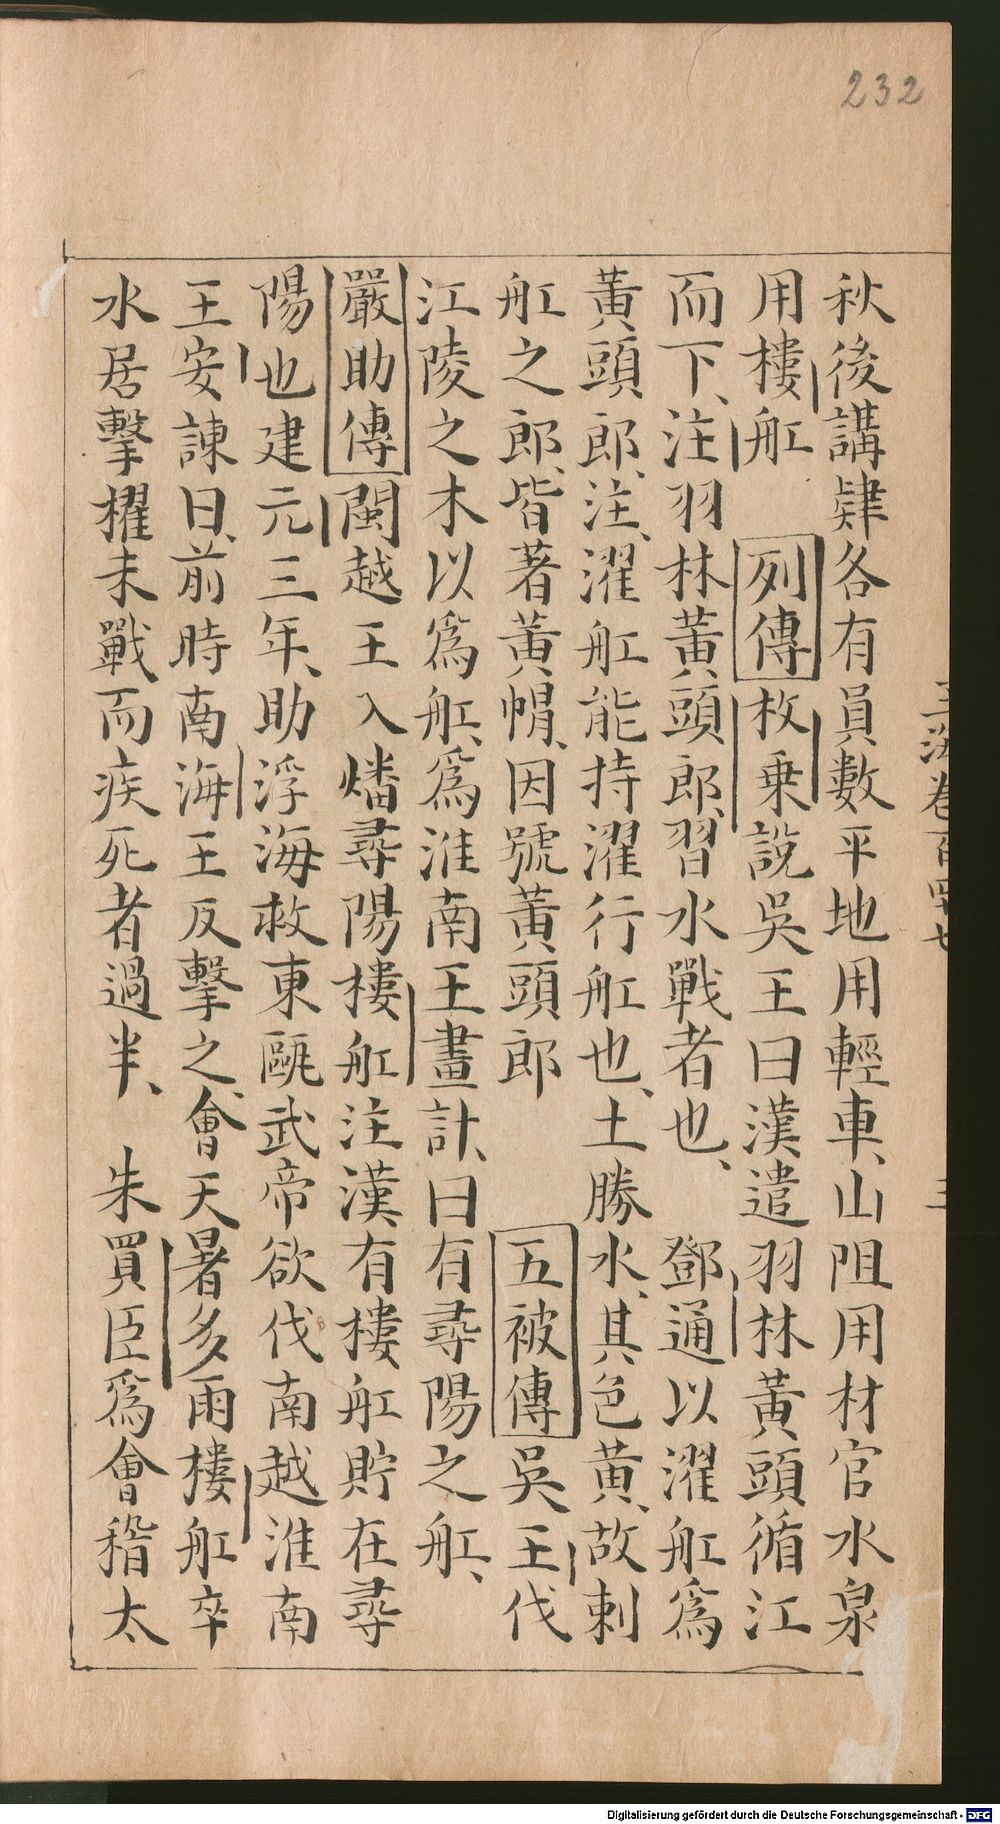 232
秋後講肄各有員數平地用輕車、山阻用材官水泉
用樓舡 列傳枚乗說吳王曰漢遣羽林黃頭循江
而下、注羽林黃頭郎、習水戰者也、 鄧通以濯舡爲
黃頭郎、注、濯舡能持濯行舡也、土勝水、其色黃、故刺
舡之郎、皆著黃㡌、因號黃頭郎 五被傳吳王伐
江陵之木以爲舡、爲淮南王畫計、曰有尋陽之舡、
嚴助傳閩越王入燔尋陽樓舡注漢有樓舡貯在尋
陽也建元三年、助浮海救東甌武帝欲伐南越淮南
王安諫曰、前時南海王反擊之、會天暑多雨樓舡卒
水居擊櫂未戰而疾死者過半、 朱買臣爲會稽太
玉海卷百四十七
三
Digitalisierung gefördert durch die Deutsche Forschungsgemeinschaft - DFG